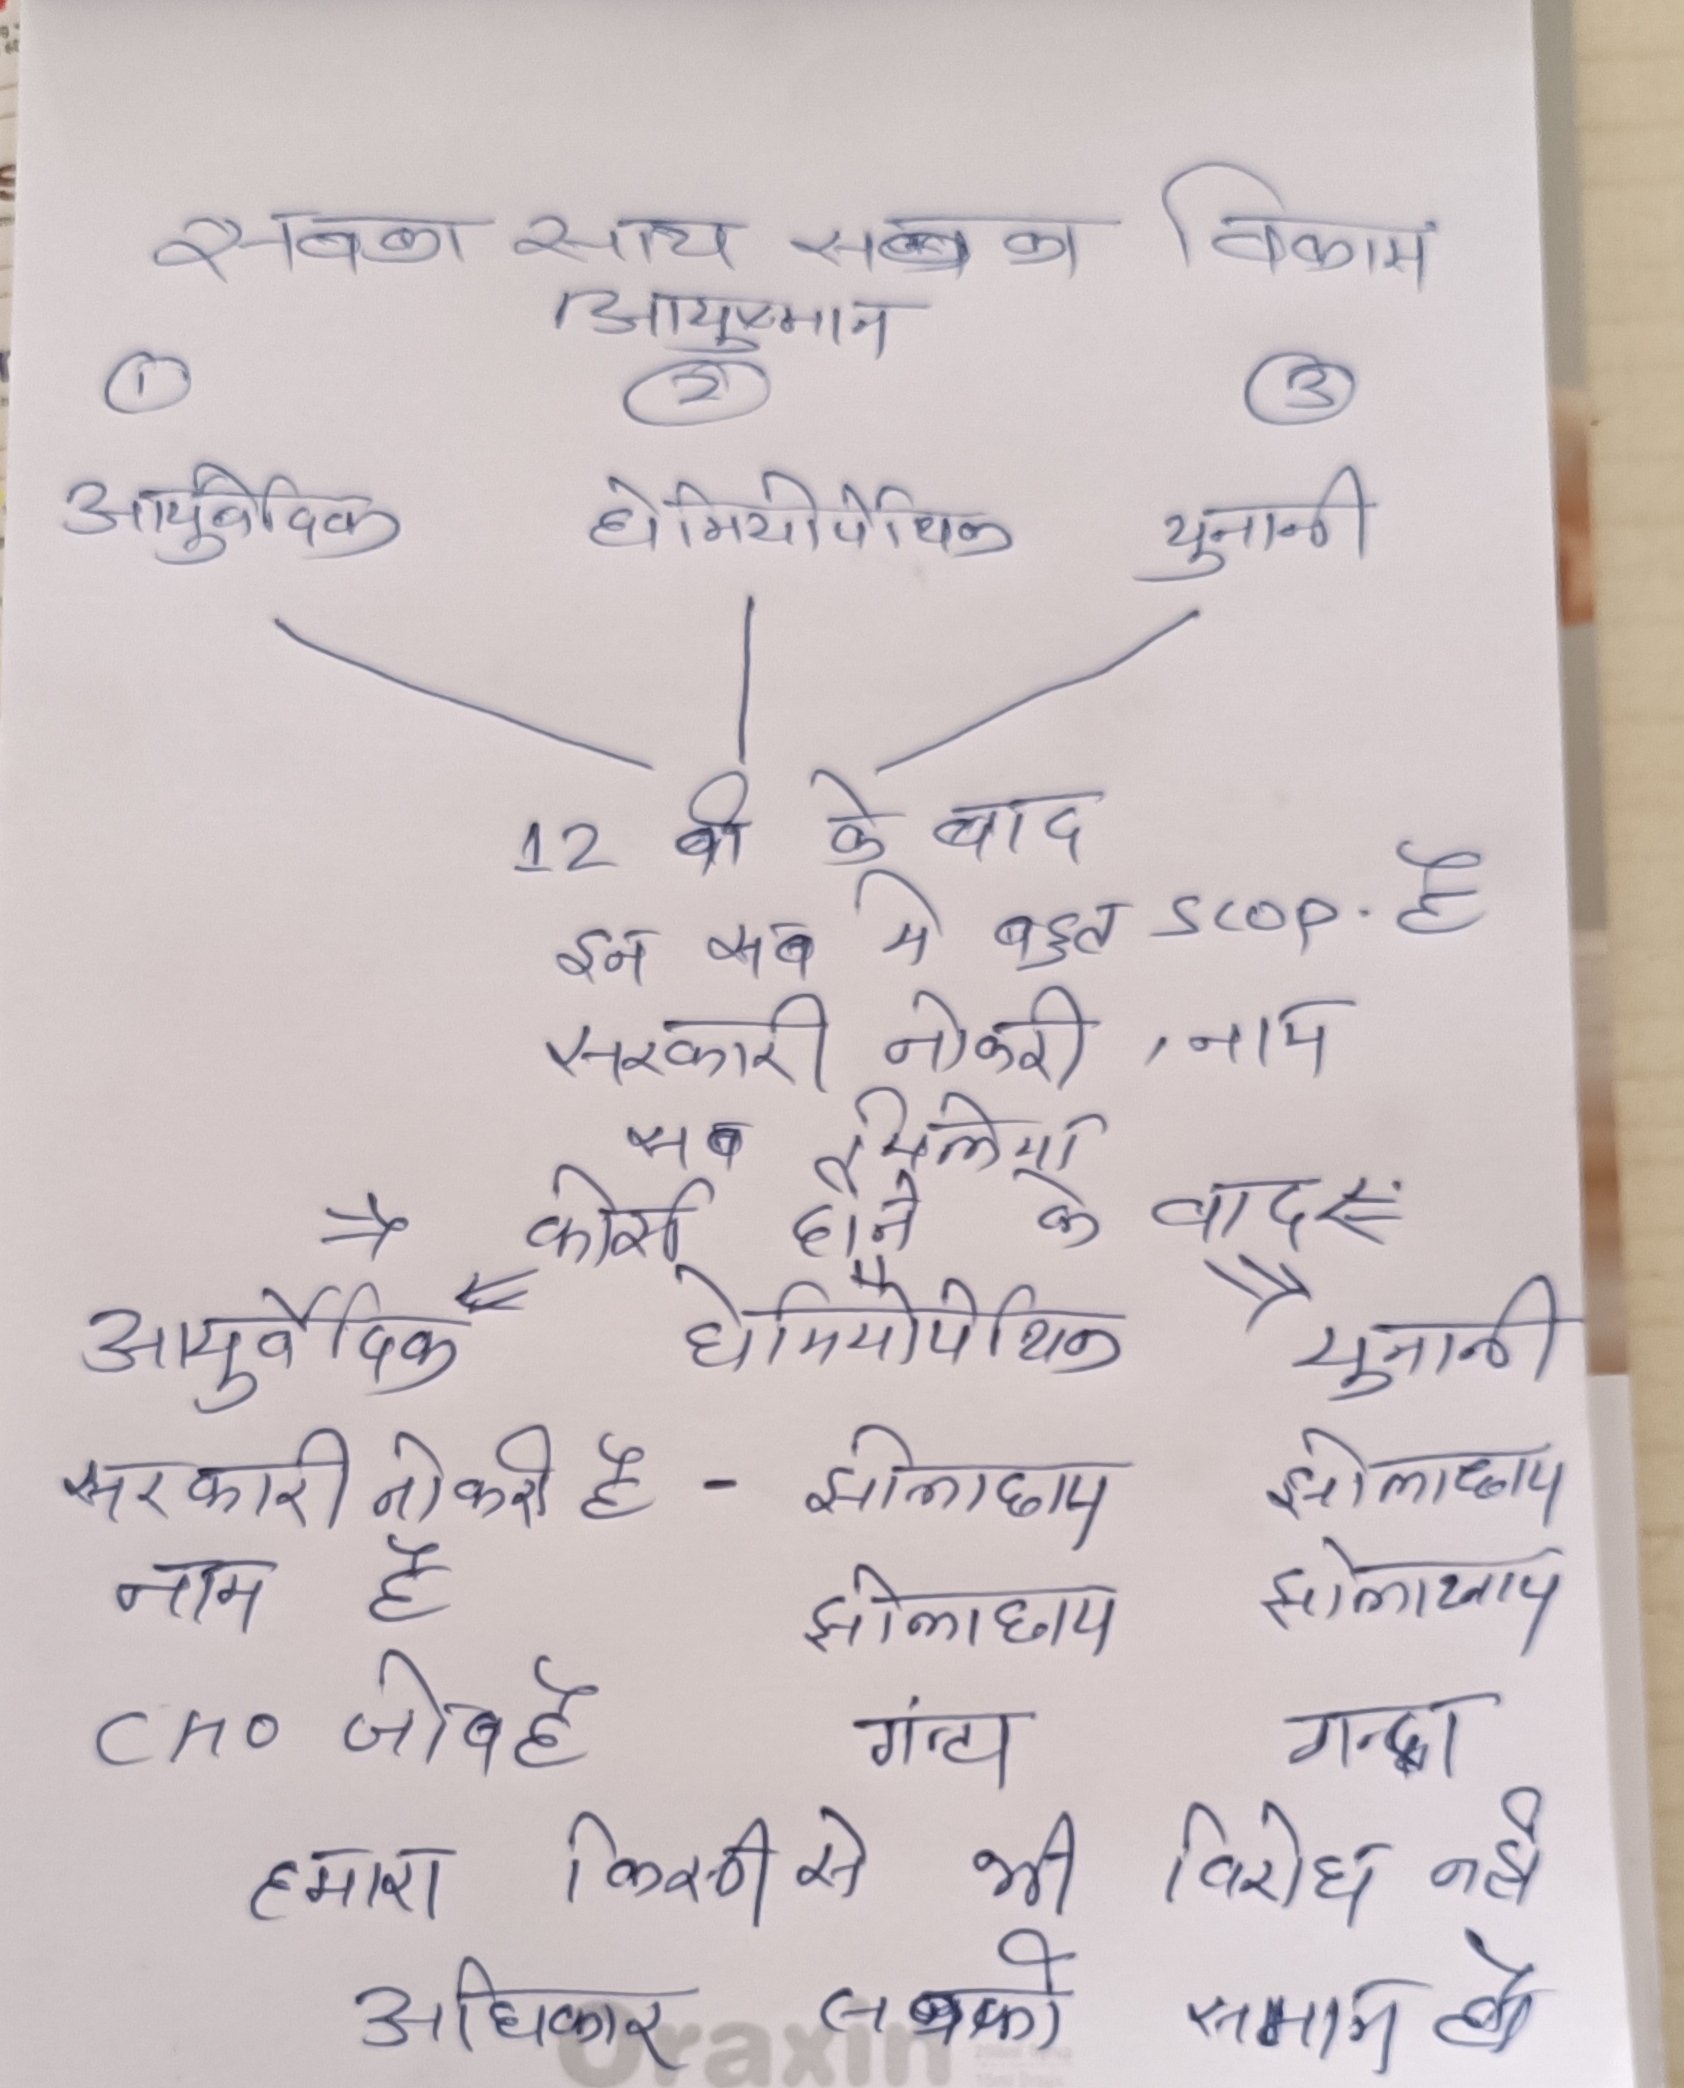 सबका साथ सबका विकास
आयुष्मान
① ② ③
आयुर्वेदिक होमियोपेथिक युनानी
12 वी के बाद
इन सब मे बहुत SCOP. है
सरकारी नोकरी , नाम
सब मिलेगा
⇒ कोर्स होने के बाद ⇐
आयुर्वेदिक होमियोपेथिक युनानी
सरकारी नोकरी है - झोलाछाप झोलाछाप
नाम है झोलाछाप झोलाछाप
CHO जोब है गन्दा
हमारा किसी से भी विरोध नही
अधिकार सबको समान हो
oraxin